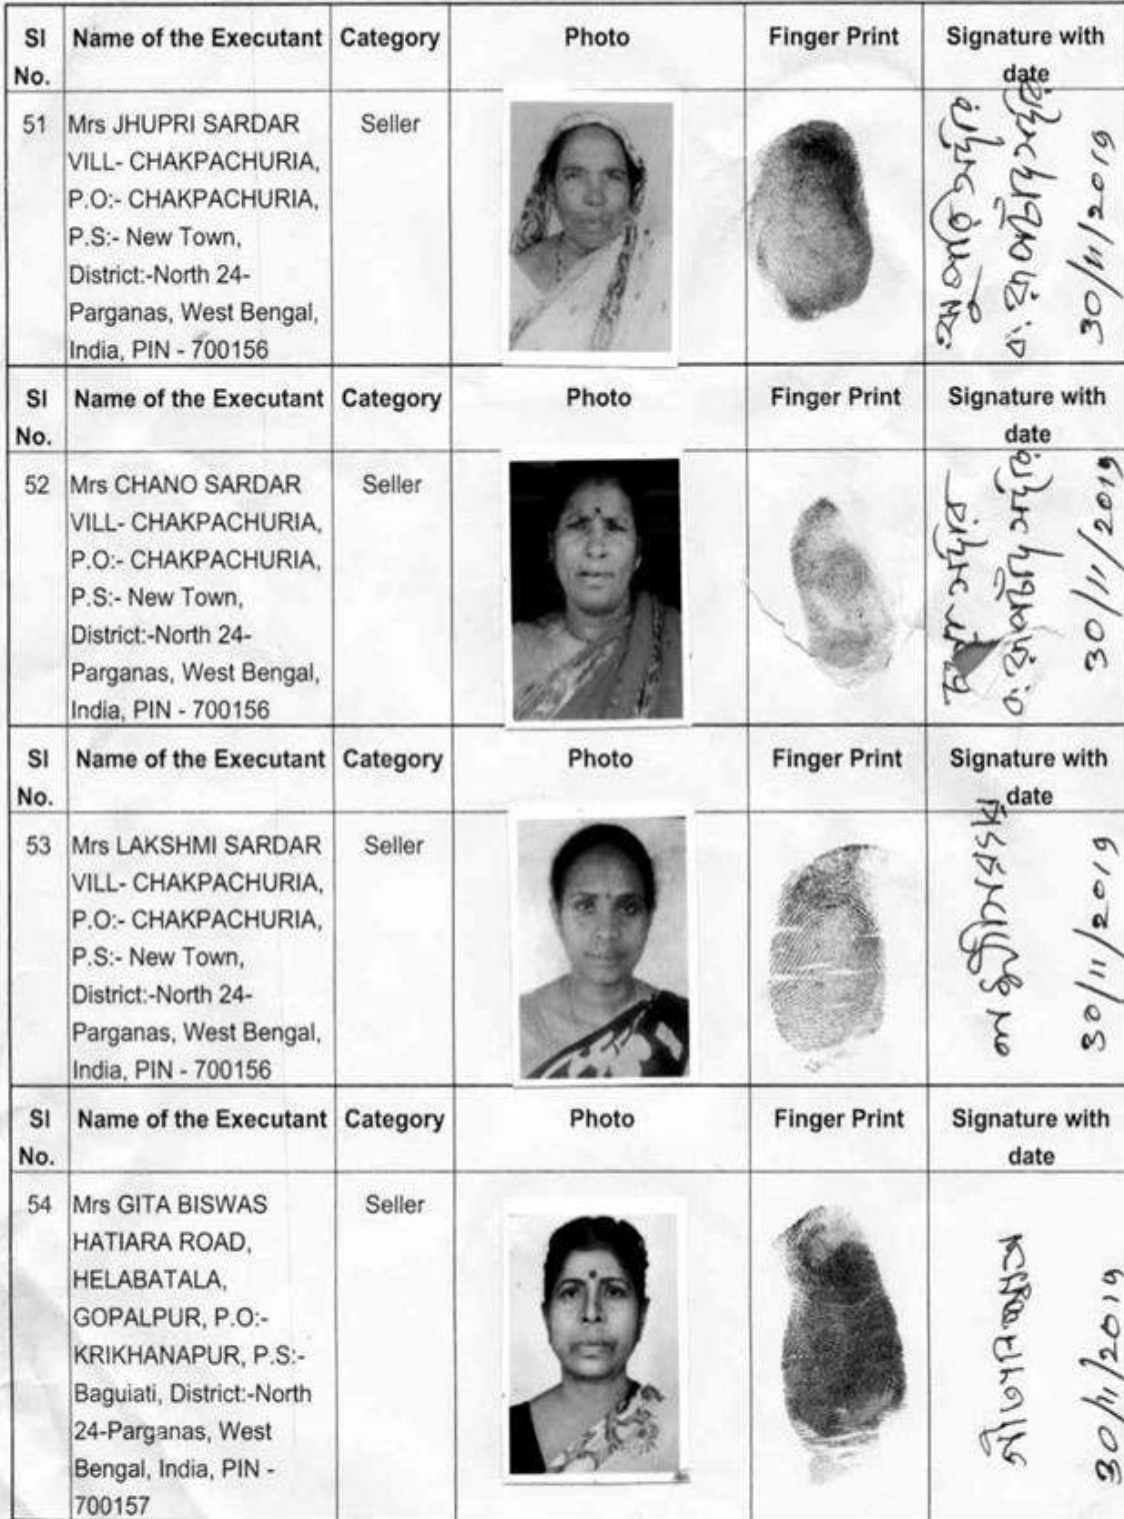 Sl No. Name of the Executant Category Photo Finger Print Signature with date
51 Mrs JHUPRI SARDAR Seller
VILL- CHAKPACHURIA,
P.O:- CHAKPACHURIA,
P.S:- New Town,
District:-North 24-
Parganas, West Bengal,
India, PIN - 700156
30/11/2019
Sl No. Name of the Executant Category Photo Finger Print Signature with date
52 Mrs CHANO SARDAR Seller
VILL- CHAKPACHURIA,
P.O:- CHAKPACHURIA,
P.S:- New Town,
District:-North 24-
Parganas, West Bengal,
India, PIN - 700156
30/11/2019
Sl No. Name of the Executant Category Photo Finger Print Signature with date
53 Mrs LAKSHMI SARDAR Seller
VILL- CHAKPACHURIA,
P.O:- CHAKPACHURIA,
P.S:- New Town,
District:-North 24-
Parganas, West Bengal,
India, PIN - 700156
30/11/2019
Sl No. Name of the Executant Category Photo Finger Print Signature with date
54 Mrs GITA BISWAS Seller
HATIARA ROAD,
HELABATALA,
GOPALPUR, P.O:-
KRIKHANAPUR, P.S:-
Baguiati, District:-North
24-Parganas, West
Bengal, India, PIN -
700157
30/11/2019